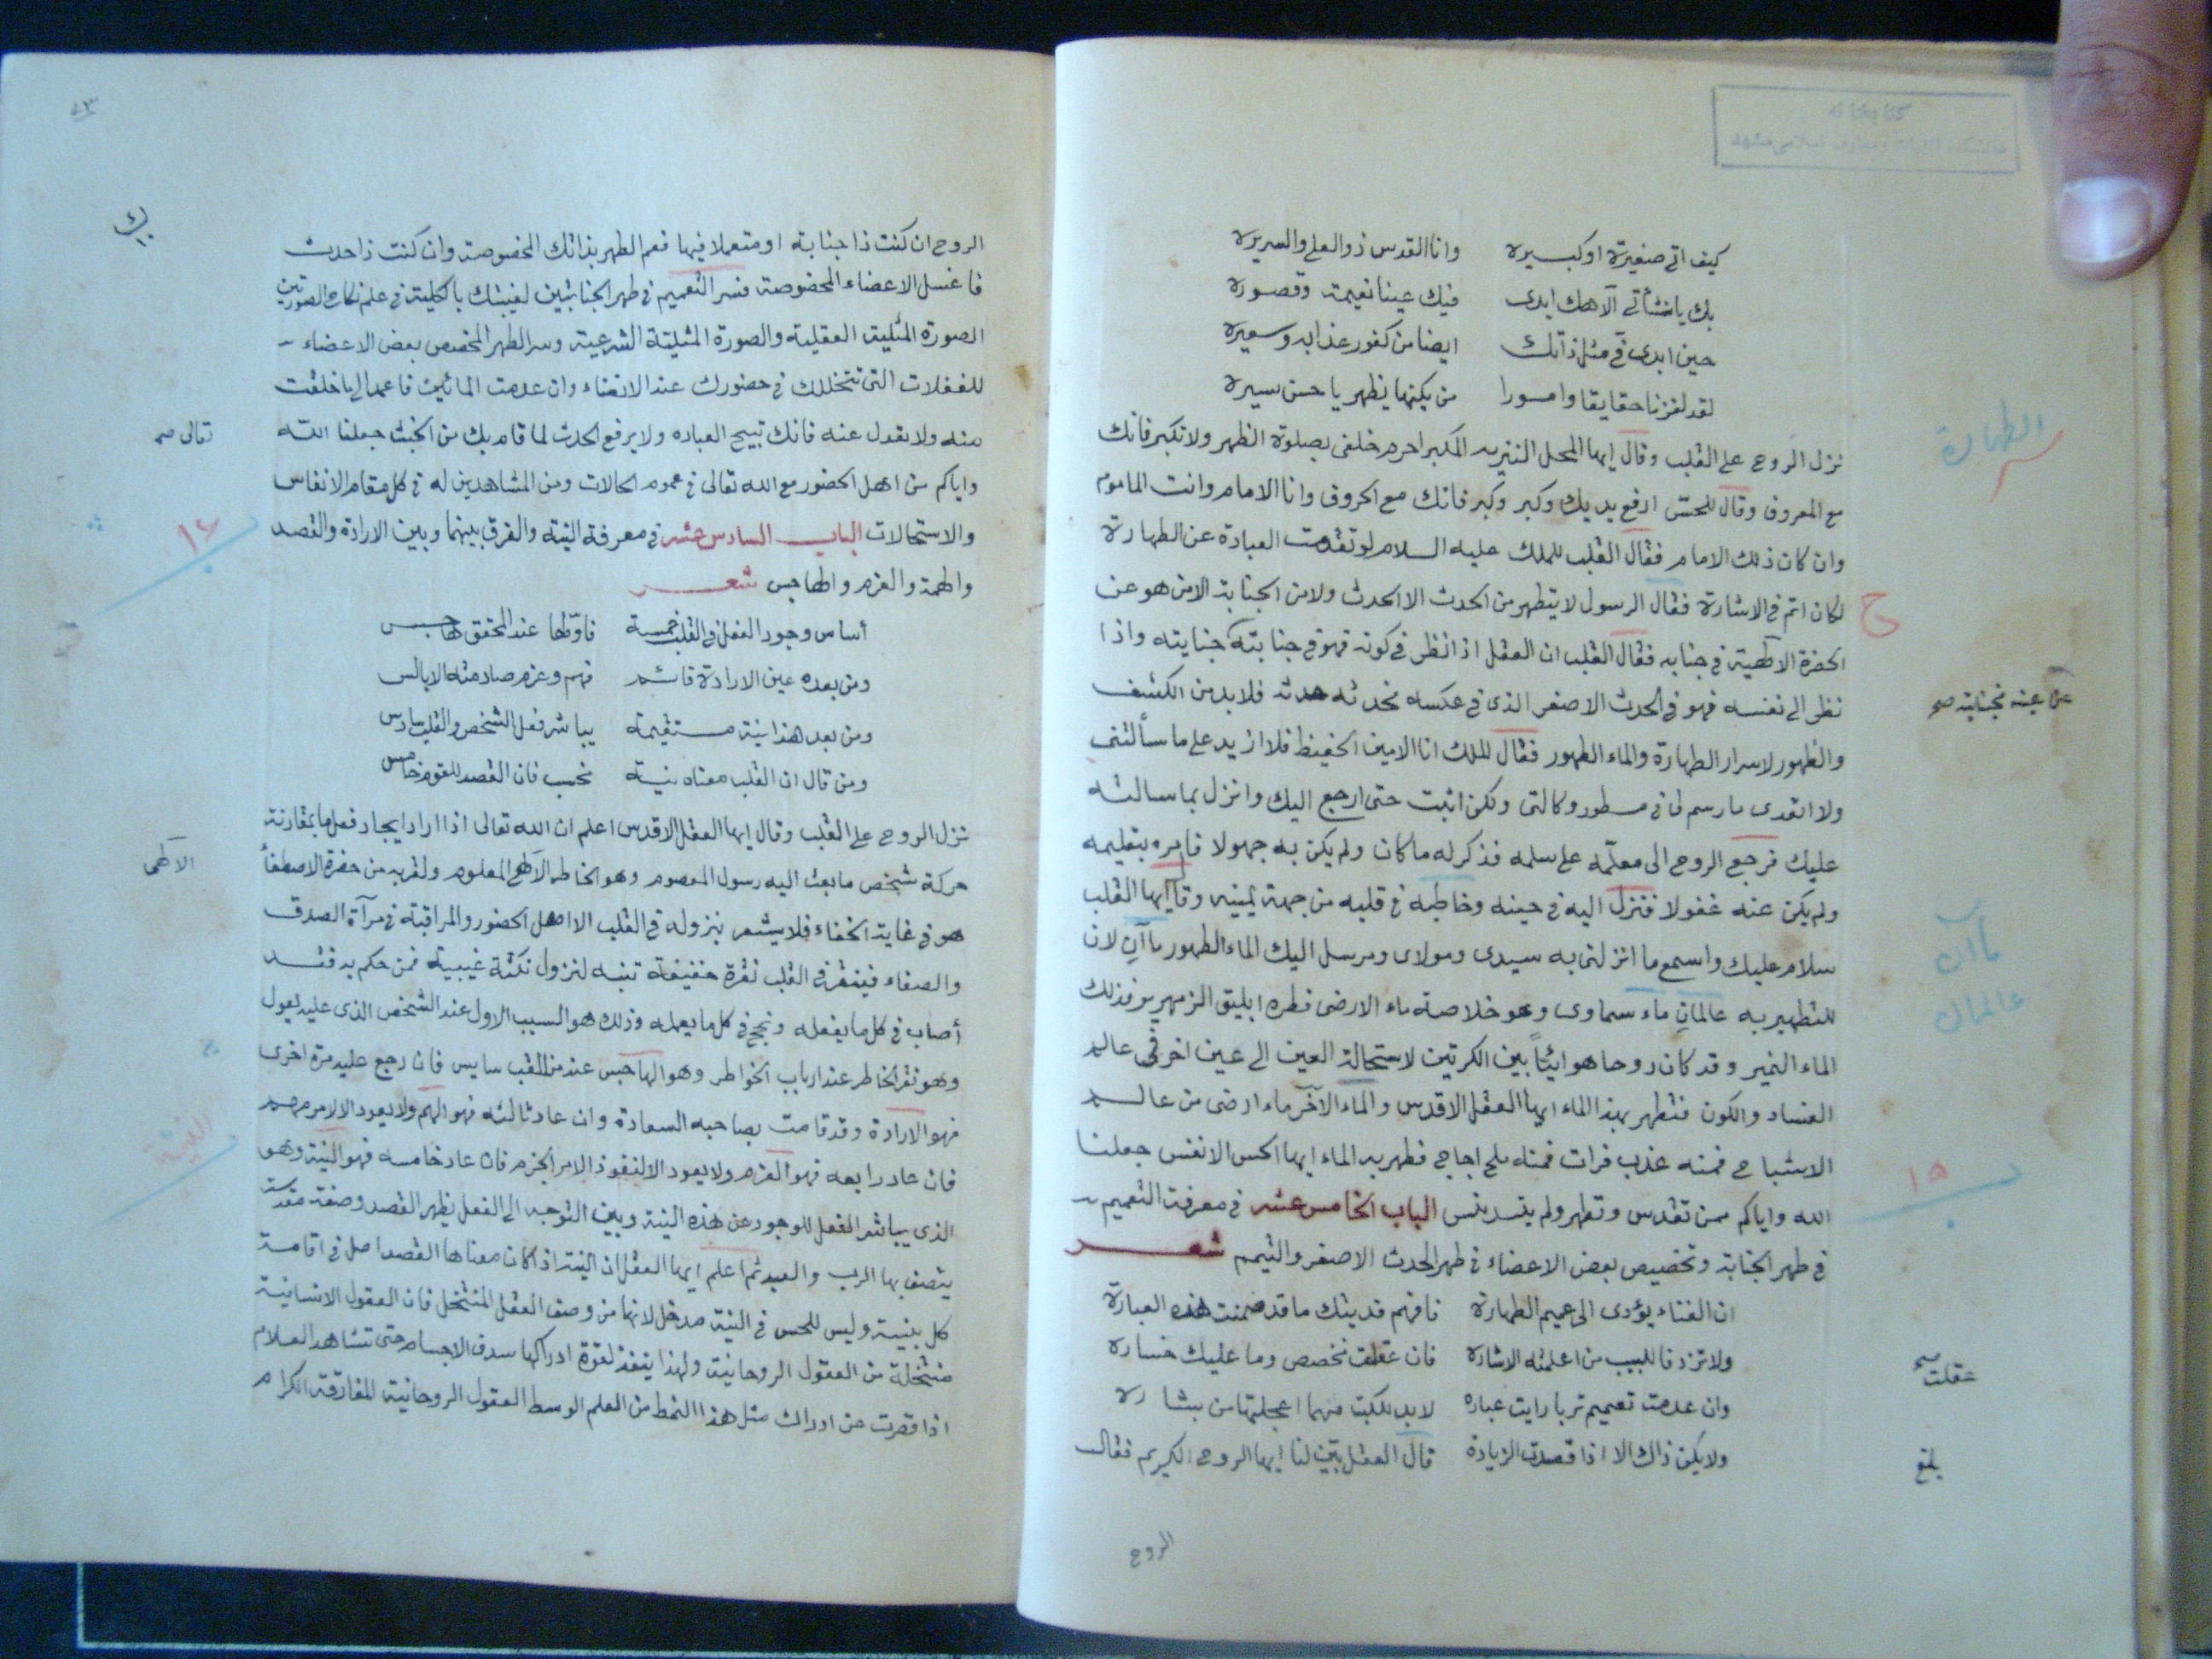 كتابخانه
كيف اتى صغيرة او كبسيرة وانا القدس ذو العلى والسريرة
بك يا نشأتى آلاهك ابدى فيك عينا نعيمة وقصورة
حين ابدى فى مثل ذاتك ايضا من كفور عذابه وسعيره
لقد لغزنا حقايقا وامورا من يكنها يظهر يا حسن سيرة
نزل الروح على القلب وقال ايها المحل النزيه المكبر احرم خلفى بصلوة الظهر ولا تكبر فانك
مع المعروف وقال للحسّ ارفع يديك وكبر وكبر فانك مع الحروف وانا الامام وانت الماموم
وان كان ذلك الامام فقال القلب للملك عليه السلام لو تقدمت العبادة عن الطهارة
لكان اتم فى الاشارة فقال الرسول لا يتطهر من الحدث الا الحدث ولا من الجنابة الا من هو عن
الحضرة الالهية فى جنابه فقال القلب ان العقل اذا نظر فى كونه فهو فى جنابته جنايته واذا
نظر الى نفسه فهو فى الحدث الاصغر الذى فى عكسه محدثه حدثه فلا بد من الكشف
والظهور لاسرار الطهارة والماء الطهور فقال للملك انا الامين الحفيظ فلا ازيد على ما سألتنى
ولا اتعدى ما رسم لى فى مسطور وكالتى ولكن اثبت حتى ارجع اليك وانزل بما سالته
عليك فرجع الروح الى معلّمه على سلمه فذكر له ما كان ولم يكن به جهولا فامره بتعليمه
ولم يكن عنه غفولا فنزل اليه فى حينه وخاطبه فى قلبه من جهة يمينه وقا ايها القلب
سلام عليك واسمع ما انزلنى به سيدى ومولاى ومرسل اليك الماء الطهور ماآن لان
للتطهير به عالمان ماء سماوى وهو خلاصة ماء الارضى قطره ابليق الزمهرير فذلك
الماء النمير وقد كان روحا هوائيّاً بين الكرتين لاستحالة العين الى عين اخرى فى عالم
الفساد والكون فتطهر بهذا الماء ايها العقل الاقدس والماء الآخر ماء ارضى من عالم
الاشباح فمنه عذب فرات فمنه ملح اجاج فطهر به الماء ايها الحس الانفس جعلنا
الله واياكم ممن تقدس وتطهر ولم يتدنس الباب الخامس عشر فى معرفة التعميم
فى طهر الجنابة وتخصيص بعض الاعضاء فى طهر الحدث الاصغر والتيمم شعر
ان الفناء يؤدى الى عميم الطهارة فافهم فديتك ما قد ضمنت هذه العبارة
ولا تزد فاللبيب من اعلمته الاشارة فان عقلت تخصص وما عليك خسارة
وان عدمت تعميم تربا رايت عباره لا بد للكبت منهما اعجلتها من بشارة
ولا يكن ذاك الا اذا قصدت الزيادة قال العقل بيّن لنا ايها الروح الكريم فقال
الروح
الطهارة
عن عينه بجنايته صح
ماآن
عالمان
١٥
عقلت
بلغ
٤٣
الروح ان كنت ذا جنابة او متعملا فيها فعم الطهر بذاتك المخصوصة وان كنت ذا حدث
فاغسل الاعضاء المخصوصة فسر التعميم فى طهر الجنابتين لغيبتك بالكلية فى علم نكاح الصورتين
الصورة المثلية العقلية والصورة المثلية الشرعية وسر الطهر المخصص بعض الاعضاء
للغفلات التى تتخللك فى حضورك عند الانقضاء وان عدمت المائين فاعمد الى ما خلقت
منه ولا تعدل عنه فانك تبيح العباده ولا يرفع الحدث لما قام بك من الخبث جعلنا الله
واياكم من اهل الحضور مع الله تعالى فى عموم الحالات ومن المشاهدين له فى كل مقام الانفاس
والاستحالات الباب السادس عشر فى معرفة النية والفرق بينهما وبين الارادة والقصد
والهمة والعزم والهاجس شعر
أساس وجود الفعل فى القلب خمسة فاوّلها عند المحقق هاجس
ومن بعده عين الارادة قائم فهم وعزم صادمته الابالس
ومن بعد هذا نية مستقيمة يباشر فعل الشخص والقلب سادس
ومن قال ان القلب معناه نية نحسب فان القصد للقوم خامس
نزل الروح على القلب وقال ايها العقل الاقدس اعلم ان الله تعالى اذا اراد ايجاد فعل ما بمقارنة
حركة شخص ما بعث اليه رسوله المعصوم وهو الخاطر الالهى المعلوم ولقربه من حضرة الاصطفأ
هو فى غاية الخفاء فلا يشعر بنزوله فى القلب الا اهل الحضور والمراقبة فى مرآة الصدق
والصفاء فينقر فى القلب نقرة خفيفة تنبه لنزول نكتة غيبية فمن حكم به فقد
أصاب فى كل ما يفعله ونجح فى كل ما يعمله وذلك هو السبب الاول عند الشخص الذى عليه يعول
وهو نقر الخاطر عند ارباب الخواطر وهو الهاجس عند من للقلب سايس فان رجع عليه مرة اخرى
فهو الارادة وقد قامت بصاحبه السعادة وان عاد ثالثه فهو الهم ولا يعود الا لامر مهم
فان عاد رابعه فهو العزم ولا يعود الا لنفوذ الامر الجزم فان عاد خامسه فهو النية وهو
الذى يباشر الفعل الموجود عن هذه النية وبين التوجه الى الفعل يظهر القصد وصفة مقدسة
يتصف بها الرب والعبد ثم اعلم ايها العقل ان النية اذا كان معناها القصد اصل فى اقامة
كل بنية وليس للحس فى النية مدخل لانها من وصف العقل المنتخل فان العقول الانسانية
منتخلة من العقول الروحانية ولهذا ينفذ لقوة ادراكها سدف الاجسام حتى تشاهد العلام
اذا قصرت عن ادراك مثل هذا النمط من العلم الوسط العقول الروحانية المفارقة الكرام
تعالى صح
١٦
الالهى